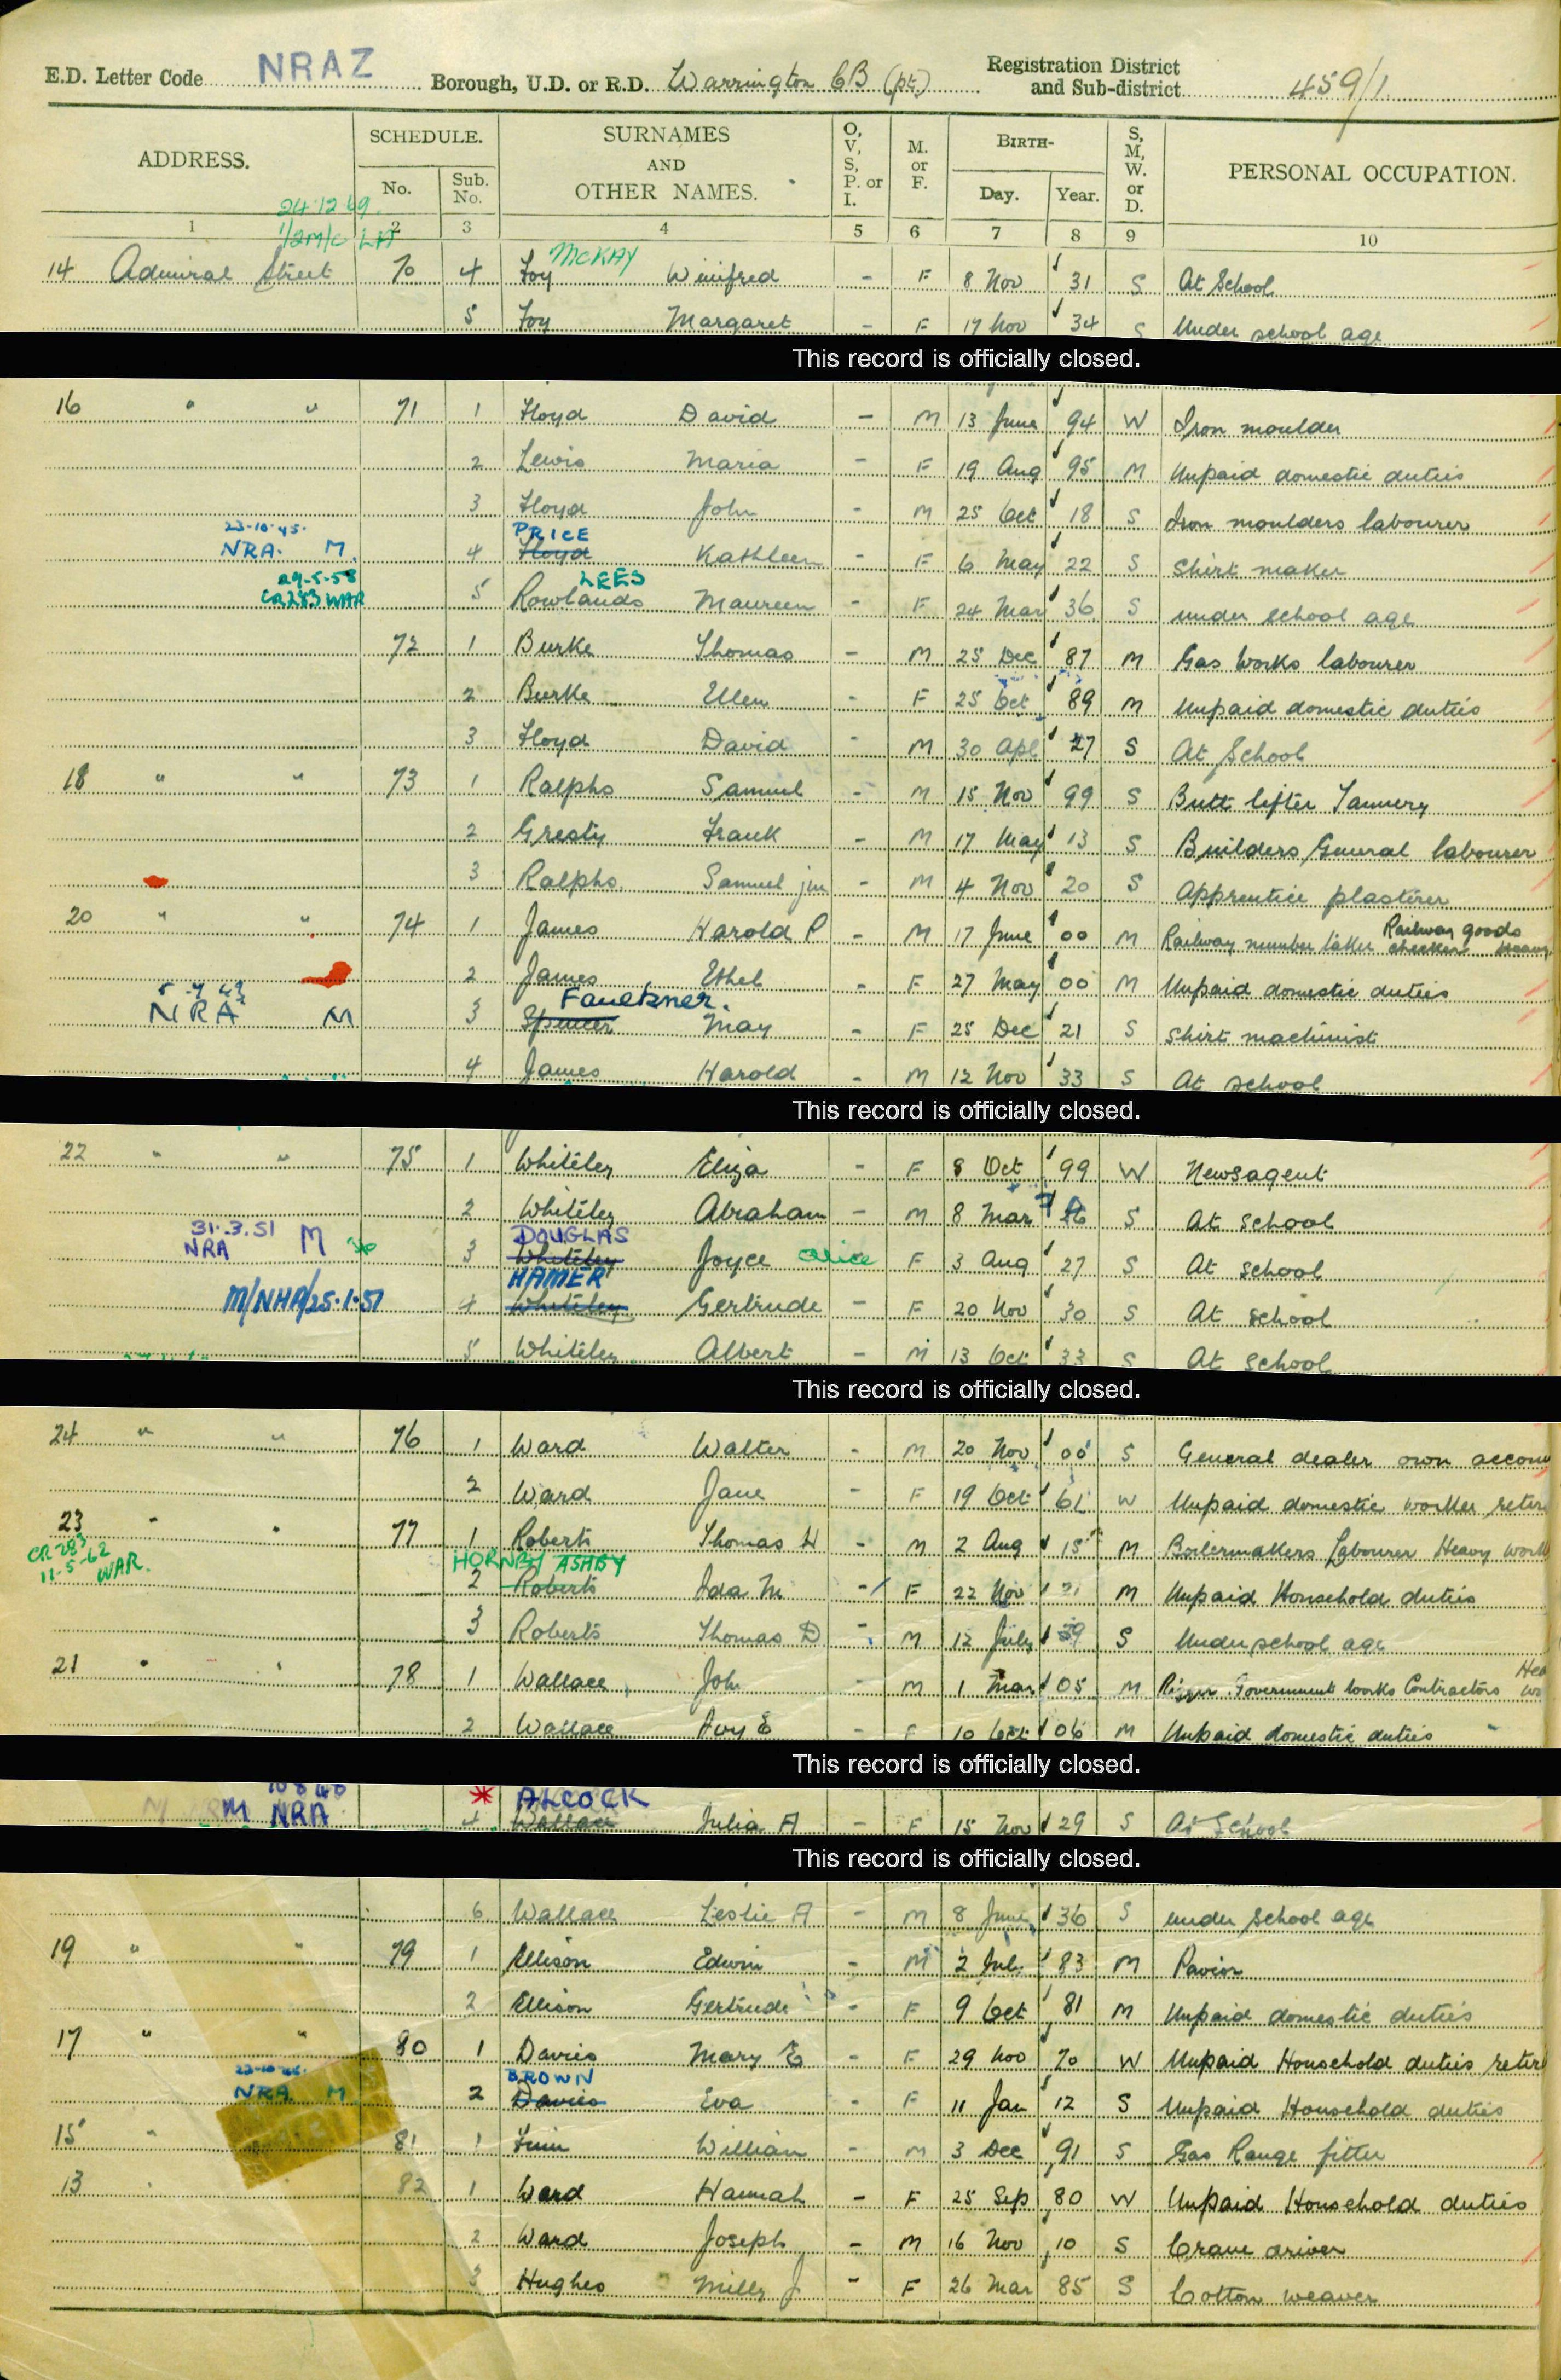 E.D. Letter Code NRAZ Borough, U.D. or R.D. Warrington CB (pt.) Registration District and Sub-district 459/1
ADDRESS. SCHEDULE. No. Sub. No. SURNAMES AND OTHER NAMES. O, V, S, P. or I. M. or F. BIRTH- Day. Year. S, M, W. or D. PERSONAL OCCUPATION.
24.12.69
1 2 3 4 5 6 7 8 9 10
McKAY
14 Admiral Street 70 4 Foy Winifred - F 8 Nov 31 S At School
5 Foy Margaret - F 17 Nov 34 S Under school age
This record is officially closed.
16 " " 71 1 Floyd David - M 13 June 94 W Iron moulder
2 Lewis Maria - F 19 Aug 95 M Unpaid domestic duties
3 Floyd John - M 25 Oct 18 S Iron moulders labourer
23-10-45. PRICE
NRA. M. 4 Floyd Kathleen - F 6 May 22 S Shirt maker
29-5-58 LEES
CR283 WAR 5 Rowlands Maureen - F 24 Mar 36 S under school age
72 1 Burke Thomas - M 25 Dec 87 M Gas Works labourer
2 Burke Ellen - F 25 Oct 89 M Unpaid domestic duties
3 Floyd David - M 30 Apl 27 S At School
18 " " 73 1 Ralphs Samuel - M 15 Nov 99 S Butt lifter Tannery
2 Gresty Frank - M 17 May 13 S Builders General labourer
3 Ralphs Samuel jun - M 4 Nov 20 S Apprentice plasterer
20 " " 74 1 James Harold P - M 17 June 00 M Railway number taker Railway goods checker Heavy
2 James Ethel - F 27 May 00 M Unpaid domestic duties
Faulkner.
NRA M 3 Spencer May - F 25 Dec 21 S Shirt machinist
4 James Harold - M 12 Nov 33 S At school
This record is officially closed.
22 " " 75 1 Whiteley Eliza - F 8 Oct 99 W Newsagent
2 Whiteley Abraham - M 8 Mar 26 S At school
31.3.51 DOUGLAS
NRA M 3 Whiteley Joyce Alice F 3 Aug 27 S At school
HAMER
M/NHA/25.1.51 4 Whiteley Gertrude - F 20 Nov 30 S At school
5 Whiteley Albert - M 13 Oct 33 S At school
This record is officially closed.
24 " " 76 1 Ward Walter - M 20 Nov 00 S General dealer own accou
2 Ward Jane - F 19 Oct 61 W Unpaid domestic worker retir
23 " " 77 1 Roberts Thomas H - M 2 Aug 15 M Boilermakers Labourer Heavy work
CR 283 HORNBY ASHBY
11-5-62 WAR. 2 Roberts Ida M - F 22 Nov 21 M Unpaid Household duties
3 Roberts Thomas D - M 12 July 39 S Under school age
21 " " 78 1 Wallace John - M 1 Mar 05 M Government Works Contractors
2 Wallace Ivy E - F 10 Oct 06 M Unpaid domestic duties
This record is officially closed.
* ALCOCK
M NRA 4 Wallace Julia A - F 15 Nov 29 S At School
This record is officially closed.
6 Wallace Leslie A - M 8 June 36 S under school age
19 " " 79 1 Ellison Edwin - M 2 Jul 83 M Pavior
2 Ellison Gertrude - F 9 Oct 81 M Unpaid domestic duties
17 " " 80 1 Davies Mary E - F 29 Nov 70 W Unpaid Household duties retir
BROWN
NRA M 2 Davies Eva - F 11 Jan 12 S Unpaid Household duties
15 " 81 1 William - M 3 Dec 91 S Gas Range fitter
13 " 82 1 Ward Hannah - F 25 Sep 80 W Unpaid Household duties
2 Ward Joseph - M 16 Nov 10 S Crane driver
3 Hughes Milly J - F 26 Mar 85 S Cotton weaver